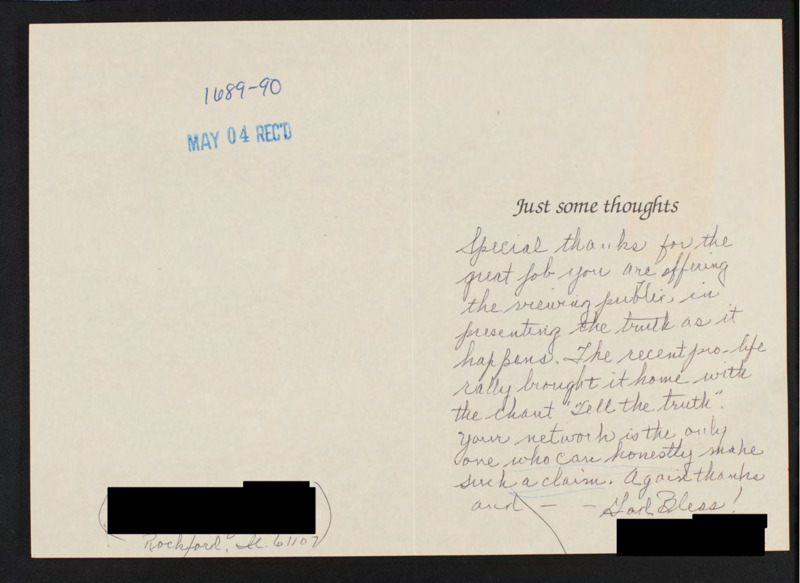 1689-90
MAY 04 REC'D
Just some thoughts
Special thanks for the
great job you are offering
the viewing public, in
presenting the truth as it
happens. The recent pro-life
rally brought it home with
the chant "Tell the truth".
Your network is the only
one who can honestly make
such a claim. Again thanks
and - - God Bless!
Rockford, Il. 61107